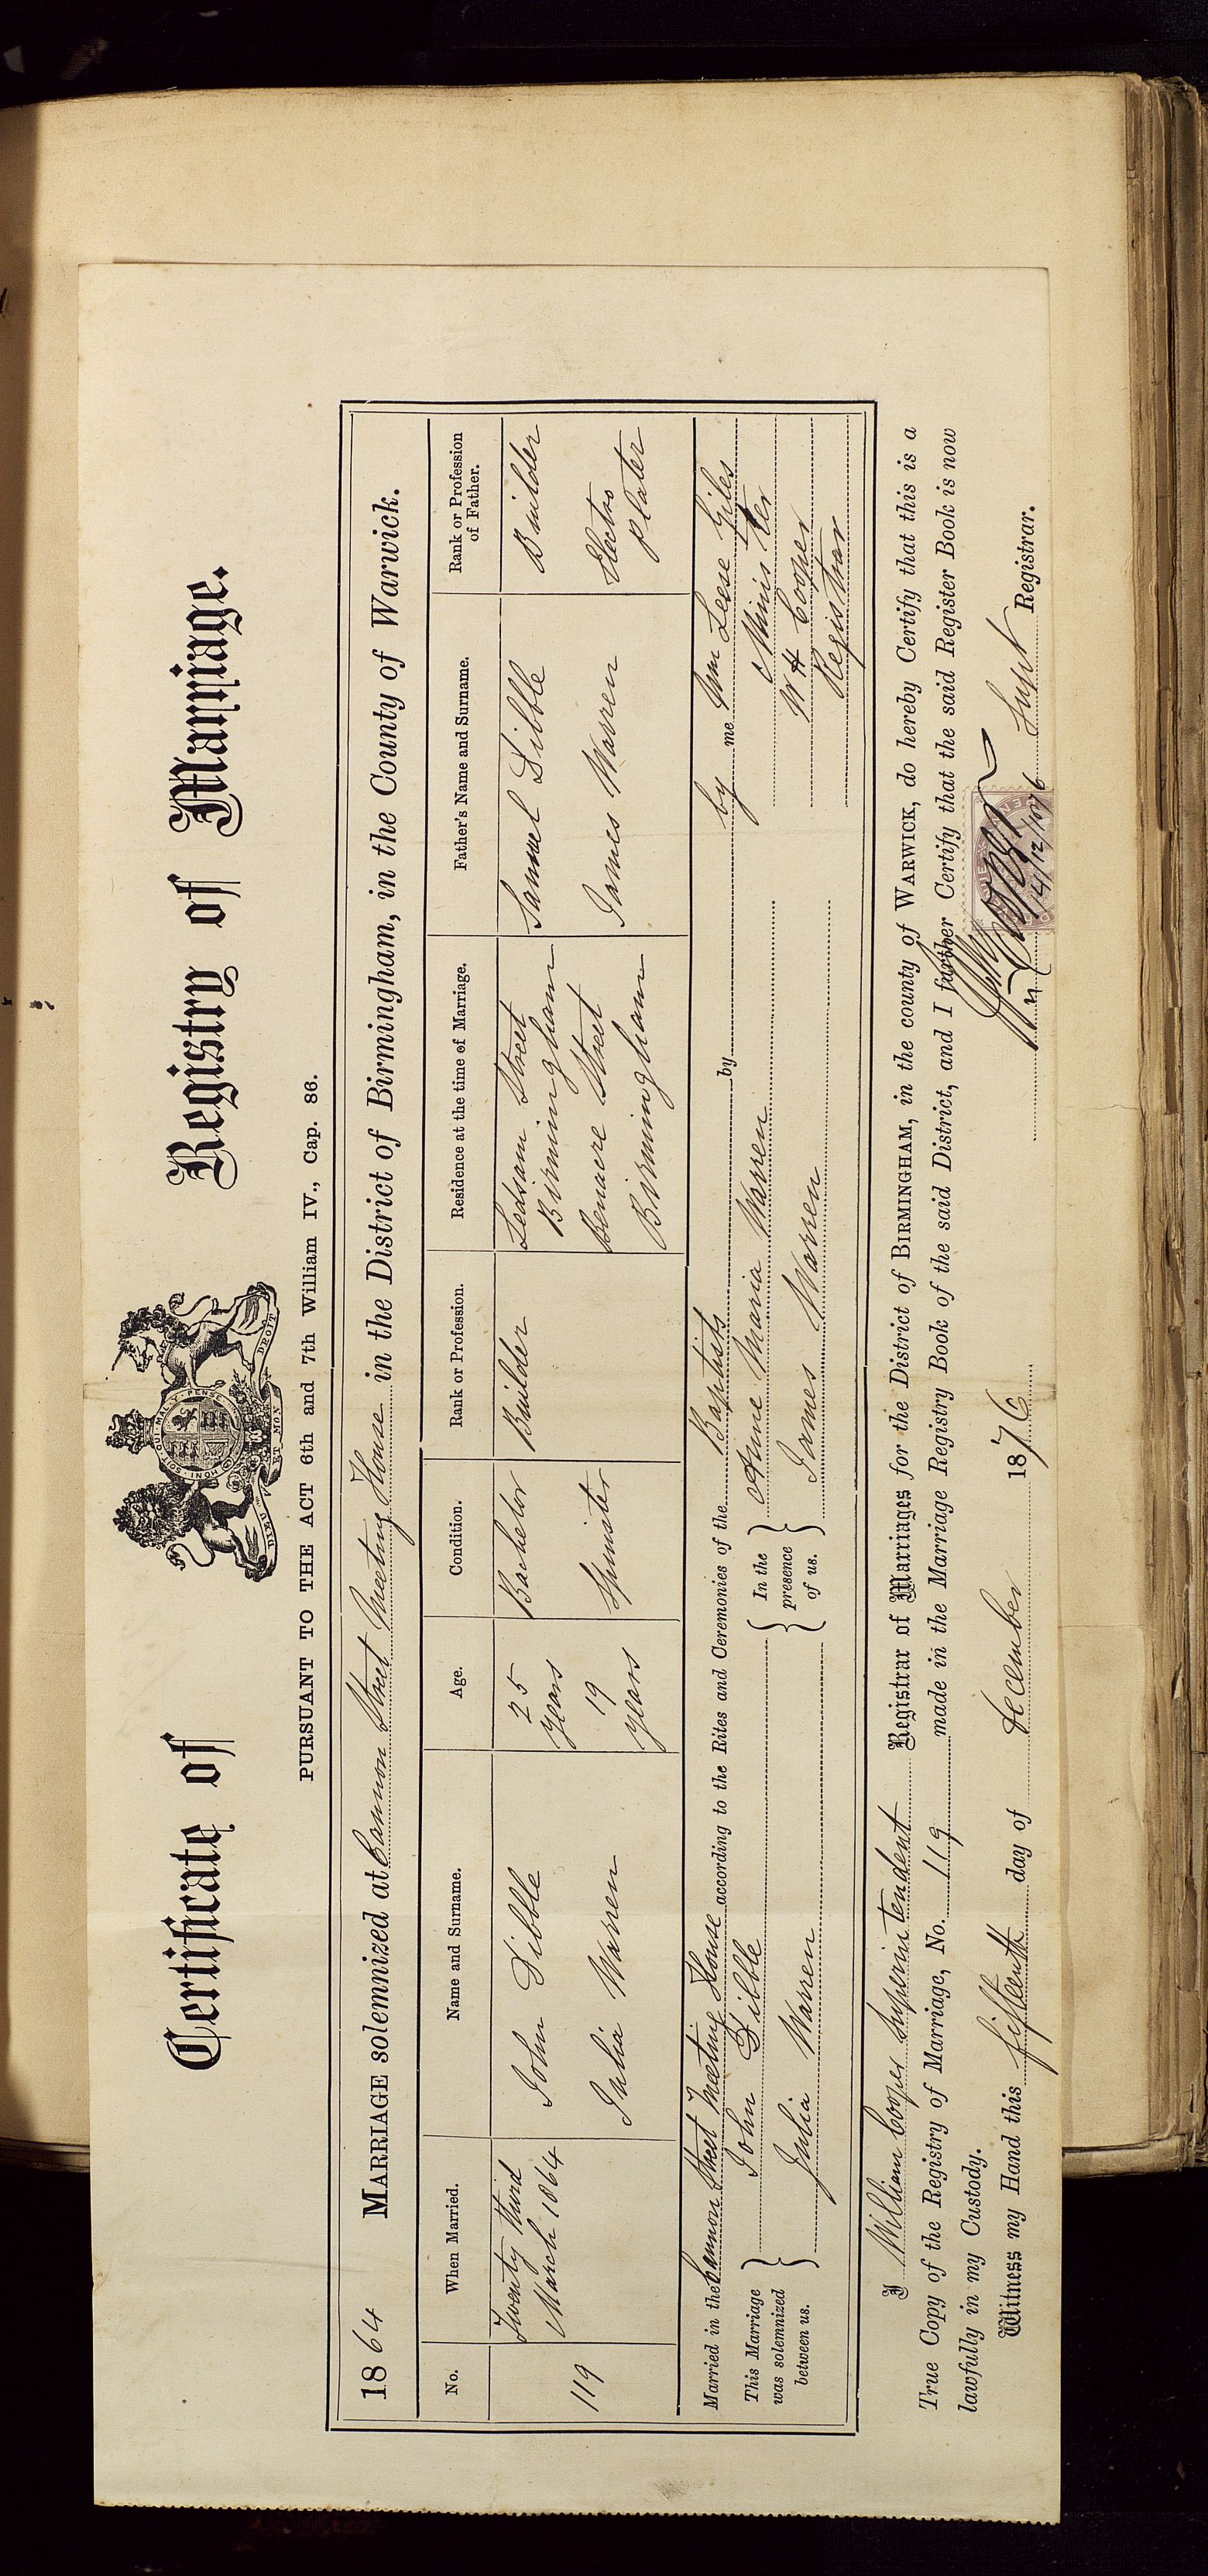 Certificate of Registry of Marriage.
HONI SOIT QUI MAL Y PENSE
DIEU ET MON DROIT
PURSUANT TO THE ACT 6th and 7th William IV., Cap. 86.
1864 MARRIAGE solemnized at Cannon Street Meeting House in the District of Birmingham, in the County of Warwick.
No. When Married. Name and Surname. Age. Condition. Rank or Profession. Residence at the time of Marriage. Father's Name and Surname. Rank or Profession of Father.
119 Twenty third March 1864
John Dibble 25 years Bachelor Builder Ledsam Street Birmingham Samuel Dibble Builder
Julia Warren 19 years Spinster Benacre Street Birmingham James Warren Electro Plater
Married in the Cannon Street Meeting House according to the Rites and Ceremonies of the Baptists by by me Wm Leese Giles
Minister
This Marriage was solemnized between us. John Dibble In the presence of us. Anne Maria Warren W H Cooper
Julia Warren James Warren Registrar
I William Cooper Superintendent Registrar of Marriages for the District of BIRMINGHAM, in the county of WARWICK, do hereby Certify that this is a
True Copy of the Registry of Marriage, No. 119 made in the Marriage Registry Book of the said District, and I further Certify that the said Register Book is now
lawfully in my Custody.
Witness my Hand this fifteenth day of December 1876
Wm Cooper Supt Registrar.
14/12/1876